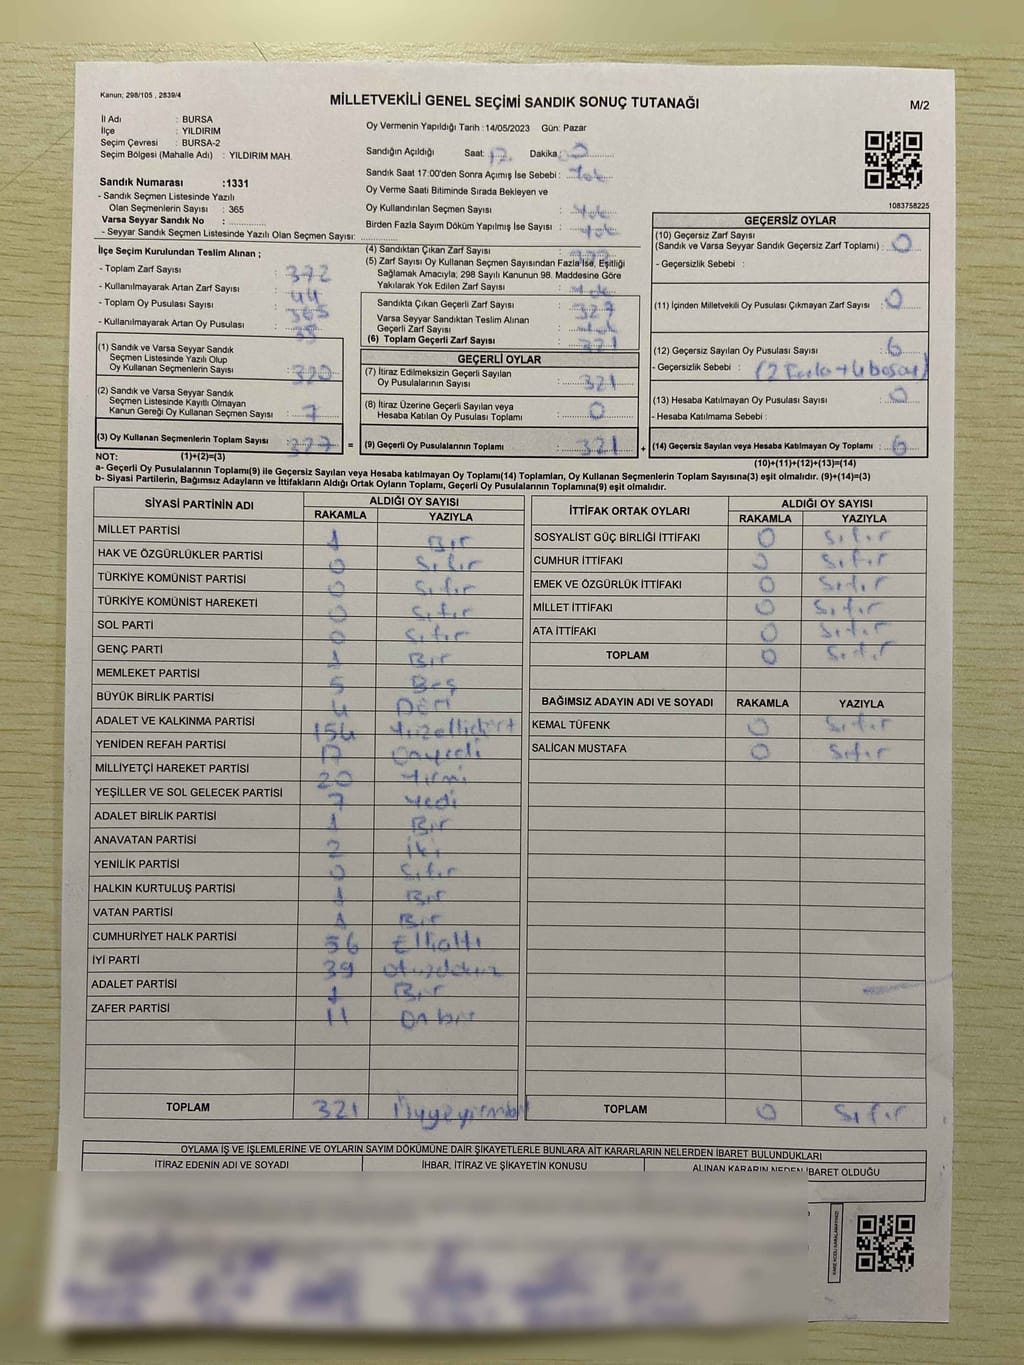 Kanun; 298/105 , 2839/4
MİLLETVEKİLİ GENEL SEÇİMİ SANDIK SONUÇ TUTANAĞI
M/2
İl Adı : BURSA
İlçe : YILDIRIM
Seçim Çevresi : BURSA-2
Seçim Bölgesi (Mahalle Adı) : YILDIRIM MAH.
Sandık Numarası :1331
- Sandık Seçmen Listesinde Yazılı
Olan Seçmenlerin Sayısı : 365
Varsa Seyyar Sandık No :
- Seyyar Sandık Seçmen Listesinde Yazılı Olan Seçmen Sayısı:
Oy Vermenin Yapıldığı Tarih :14/05/2023 Gün: Pazar
Sandığın Açıldığı Saat: 17 Dakika:
Sandık Saat 17:00'den Sonra Açımış İse Sebebi : Yok
Oy Verme Saati Bitiminde Sırada Bekleyen ve
Oy Kullandırılan Seçmen Sayısı : Yok
Birden Fazla Sayım Döküm Yapılmış İse Sayısı : Yok
1083758225
İlçe Seçim Kurulundan Teslim Alınan ;
- Toplam Zarf Sayısı : 372
- Kullanılmayarak Artan Zarf Sayısı : 44
- Toplam Oy Pusulası Sayısı : 365
- Kullanılmayarak Artan Oy Pusulası : 38
(1) Sandık ve Varsa Seyyar Sandık
Seçmen Listesinde Yazılı Olup
Oy Kullanan Seçmenlerin Sayısı : 320
(2) Sandık ve Varsa Seyyar Sandık
Seçmen Listesinde Kayıtlı Olmayan
Kanun Gereği Oy Kullanan Seçmen Sayısı : 7
(3) Oy Kullanan Seçmenlerin Toplam Sayısı : 327 =
(4) Sandıktan Çıkan Zarf Sayısı : 327
(5) Zarf Sayısı Oy Kullanan Seçmen Sayısından Fazla İse, Eşitliği
Sağlamak Amacıyla; 298 Sayılı Kanunun 98. Maddesine Göre
Yakılarak Yok Edilen Zarf Sayısı : Yok
Sandıkta Çıkan Geçerli Zarf Sayısı : 327
Varsa Seyyar Sandıktan Teslim Alınan
Geçerli Zarf Sayısı : Yok
(6) Toplam Geçerli Zarf Sayısı : 321
GEÇERLİ OYLAR
(7) İtiraz Edilmeksizin Geçerli Sayılan
Oy Pusulalarının Sayısı : 321
(8) İtiraz Üzerine Geçerli Sayılan veya
Hesaba Katılan Oy Pusulası Toplamı : 0
(9) Geçerli Oy Pusulalarının Toplamı : 321 +
GEÇERSİZ OYLAR
(10) Geçersiz Zarf Sayısı
(Sandık ve Varsa Seyyar Sandık Geçersiz Zarf Toplamı) : 0
- Geçersizlik Sebebi :
(11) İçinden Milletvekili Oy Pusulası Çıkmayan Zarf Sayısı : 0
(12) Geçersiz Sayılan Oy Pusulası Sayısı : 6
- Geçersizlik Sebebi : (2 Fazla + 4 boş oy)
(13) Hesaba Katılmayan Oy Pusulası Sayısı : 0
- Hesaba Katılmama Sebebi :
(14) Geçersiz Sayılan veya Hesaba Katılmayan Oy Toplamı : 6
NOT: (1)+(2)=(3)
(10)+(11)+(12)+(13)=(14)
a- Geçerli Oy Pusulalarının Toplamı(9) ile Geçersiz Sayılan veya Hesaba katılmayan Oy Toplamı(14) Toplamları, Oy Kullanan Seçmenlerin Toplam Sayısına(3) eşit olmalıdır. (9)+(14)=(3)
b- Siyasi Partilerin, Bağımsız Adayların ve İttifakların Aldığı Ortak Oyların Toplamı, Geçerli Oy Pusulalarının Toplamına(9) eşit olmalıdır.
SİYASİ PARTİNİN ADI ALDIĞI OY SAYISI
RAKAMLA YAZIYLA
MİLLET PARTİSİ 1 Bir
HAK VE ÖZGÜRLÜKLER PARTİSİ 0 Sıfır
TÜRKİYE KOMÜNİST PARTİSİ 0 Sıfır
TÜRKİYE KOMÜNİST HAREKETİ 0 Sıfır
SOL PARTİ 0 Sıfır
GENÇ PARTİ 1 Bir
MEMLEKET PARTİSİ 5 Beş
BÜYÜK BİRLİK PARTİSİ 4 Dört
ADALET VE KALKINMA PARTİSİ 154 Yüzellidört
YENİDEN REFAH PARTİSİ 17 Onyedi
MİLLİYETÇİ HAREKET PARTİSİ 20 Yirmi
YEŞİLLER VE SOL GELECEK PARTİSİ 7 Yedi
ADALET BİRLİK PARTİSİ 1 Bir
ANAVATAN PARTİSİ 2 İki
YENİLİK PARTİSİ 0 Sıfır
HALKIN KURTULUŞ PARTİSİ 1 Bir
VATAN PARTİSİ 1 Bir
CUMHURİYET HALK PARTİSİ 56 Ellialtı
İYİ PARTİ 39 Otuzdokuz
ADALET PARTİSİ 1 Bir
ZAFER PARTİSİ 11 Onbir
TOPLAM 321 Üçyüzyirmibir
İTTİFAK ORTAK OYLARI ALDIĞI OY SAYISI
RAKAMLA YAZIYLA
SOSYALİST GÜÇ BİRLİĞİ İTTİFAKI 0 Sıfır
CUMHUR İTTİFAKI 0 Sıfır
EMEK VE ÖZGÜRLÜK İTTİFAKI 0 Sıfır
MİLLET İTTİFAKI 0 Sıfır
ATA İTTİFAKI 0 Sıfır
TOPLAM 0 Sıfır
BAĞIMSIZ ADAYIN ADI VE SOYADI RAKAMLA YAZIYLA
KEMAL TÜFENK 0 Sıfır
SALİCAN MUSTAFA 0 Sıfır
TOPLAM 0 Sıfır
OYLAMA İŞ VE İŞLEMLERİNE VE OYLARIN SAYIM DÖKÜMÜNE DAİR ŞİKAYETLERLE BUNLARA AİT KARARLARIN NELERDEN İBARET BULUNDUKLARI
İTİRAZ EDENİN ADI VE SOYADI İHBAR, İTİRAZ VE ŞİKAYETİN KONUSU ALINAN KARARIN NEDEN İBARET OLDUĞU